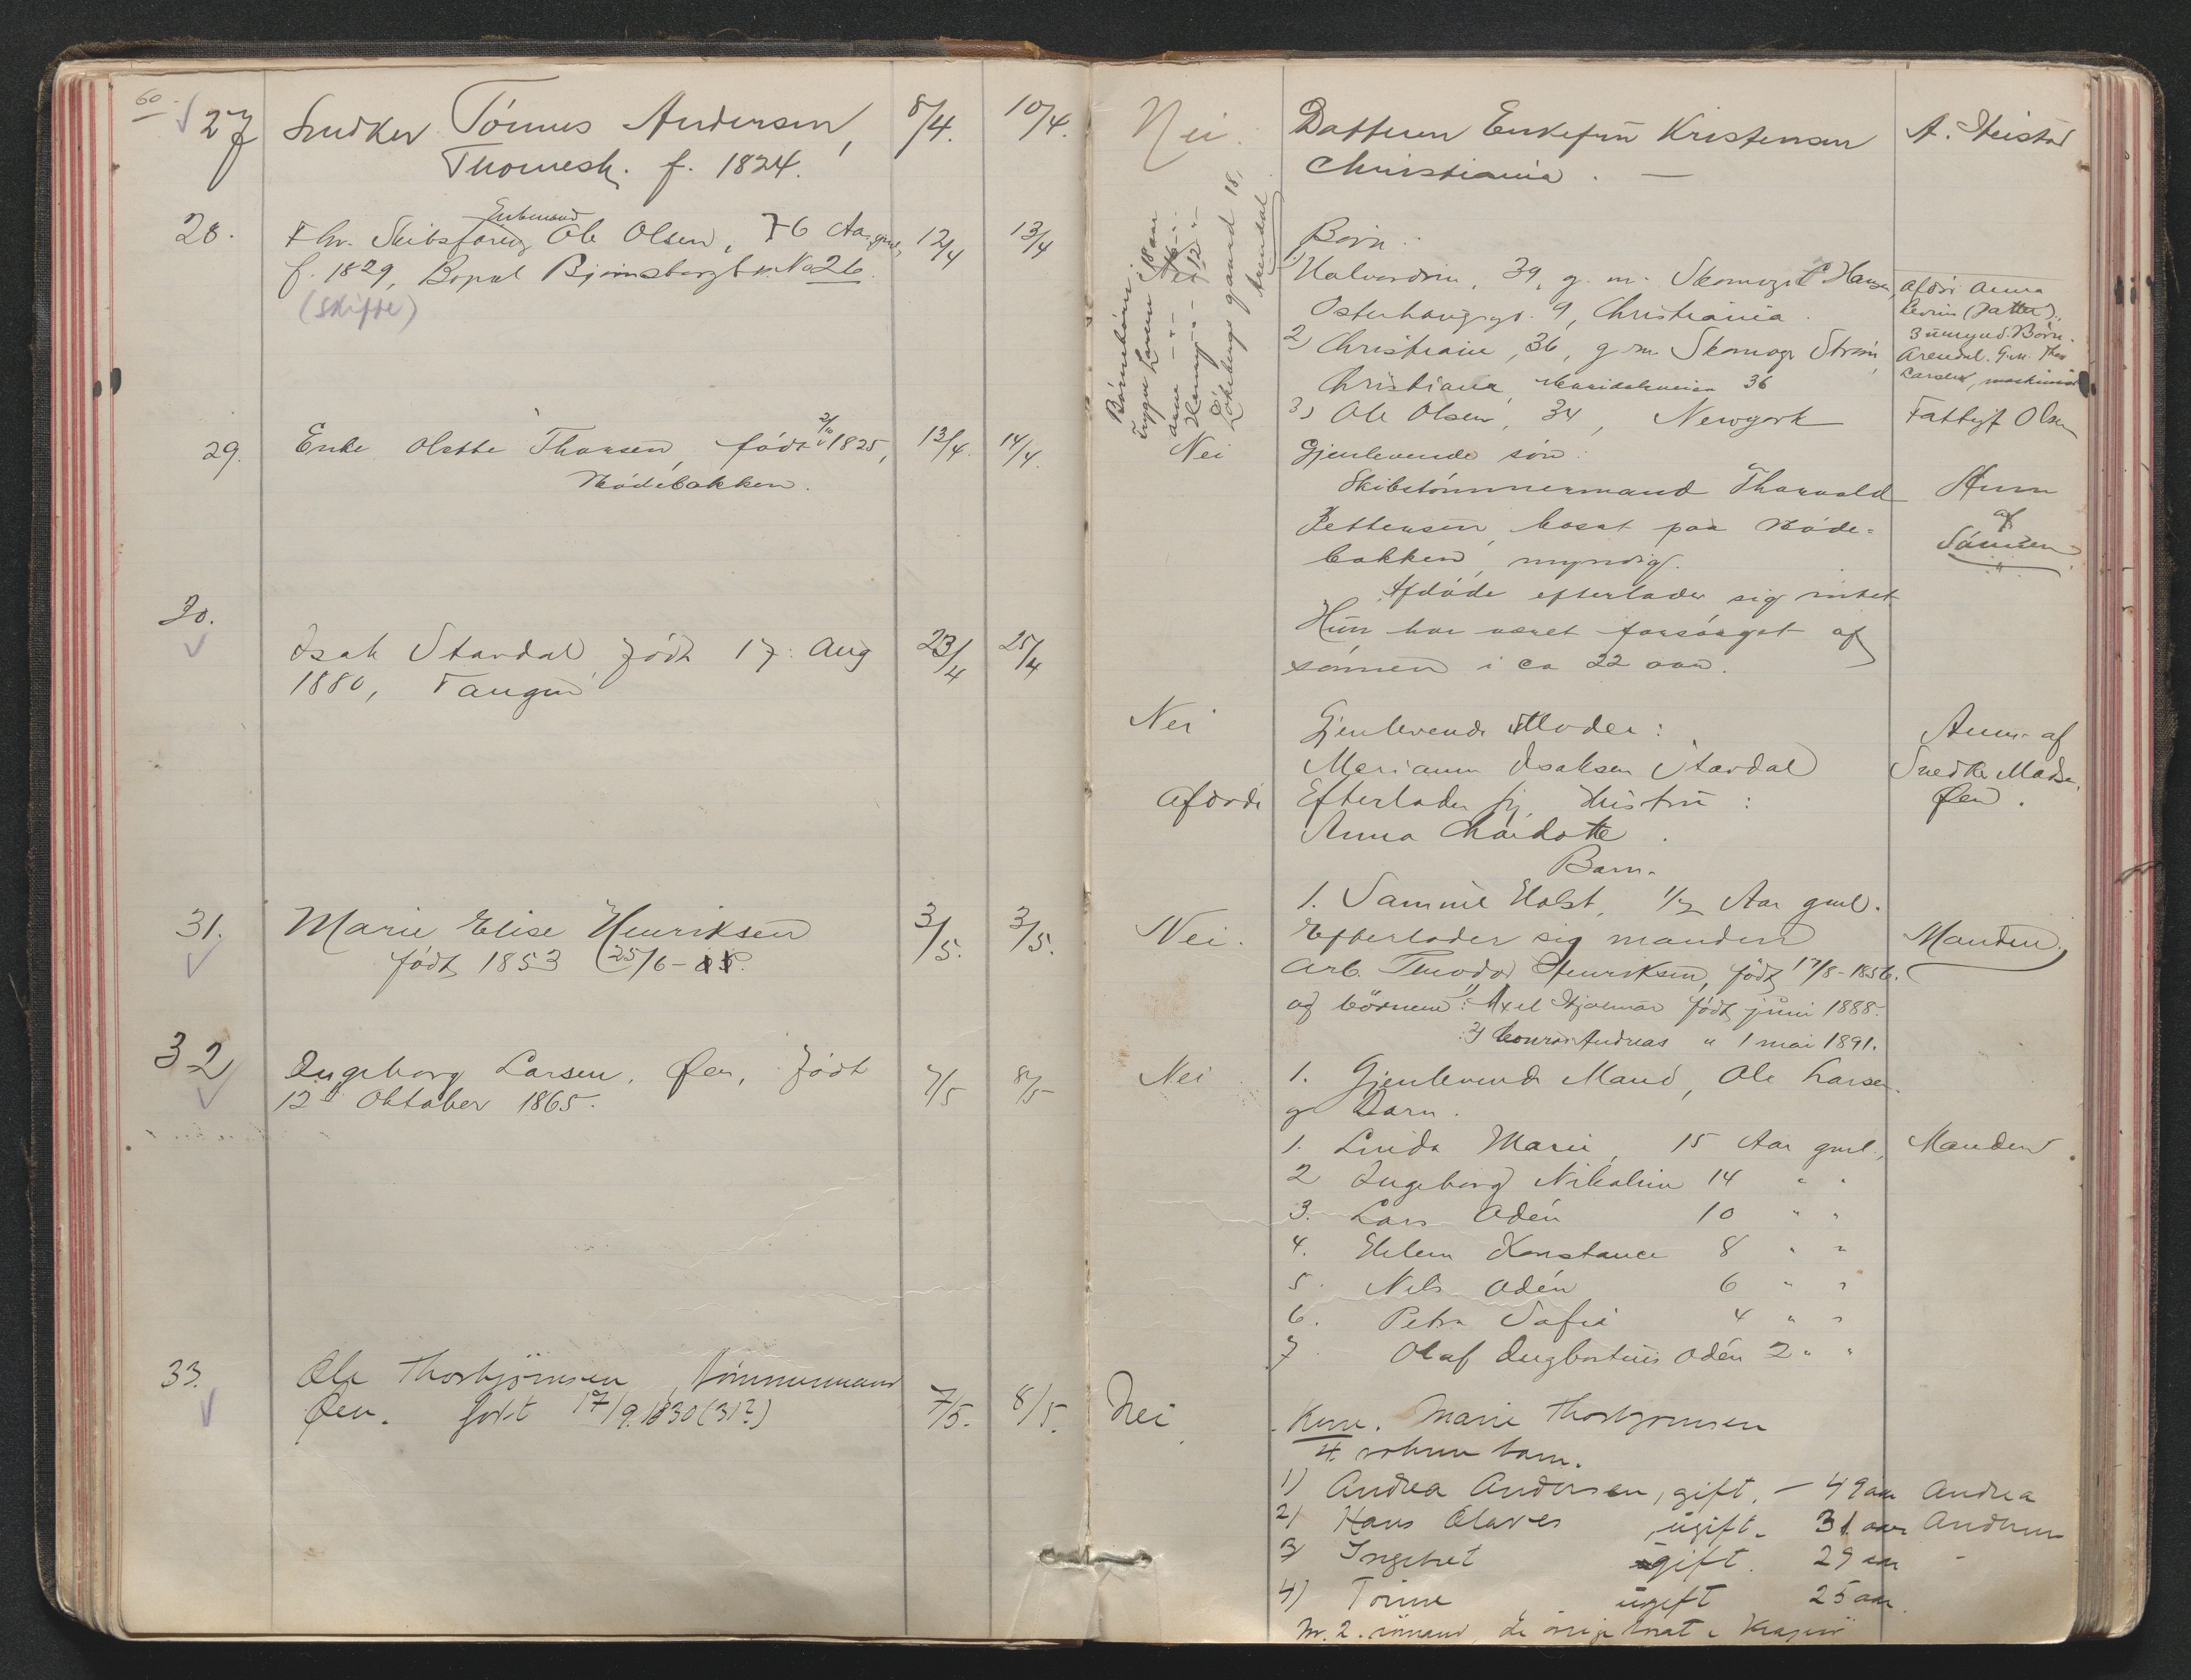 60
27 Snedker Tönnes Andersen, 8/4. 10/4.
Thomesh. f. 1824.
28. Fhv. Skibsfører Enkemand Ole Olsen, 76 Aar gml, 12/4 13/4
f. 1829, Bopæl Bjørnsbergb. No 26.
(Skifte)
29. Enke Olette Thorsen, født 1825, 13/4. 14/4.
Nödebakken.
30.
Isak Stavdal født 17. Aug 23/4 25/4
1880, Tangen
31. Marie Elise Henriksen 3/5. 3/5.
født 1853 25/6-
32 Ingeborg Larsen, Øen, født 7/5 8/5
12 Oktober 1865.
33. Ole Thorbjörnsen, Tömmermand 7/5. 8/5.
Øen. født 17/9. 1830 (31?)
Nei. Datteren Enkefru Kristensen A. Heistad
Christiania. —
Börnebörn:
Yngvar Larsen 18 aar
Anna - " - 16 - " -
Henry - " - 12 - "
gaard 18,
Arendal
Børn:
1) Halvordine, 39, g. m. Skomager Hansen,
Osterhausgd. 9, Christiania.
2) Christiane, 36, g. m. Skomager Strøm,
Christiania, Maridalsveien 36
3) Ole Olsen, 34, Newyork
Afdöde Anna
(Datter),
3 umynd. Börn.
Arendal. G.m.
Larsen, maskinist
Fattigf Olsen
Nei Gjenlevende sön:
Skibstömmermand Tharvald Anm
Pettersen, bosat paa Nöde= af
bakken, myndig. Sönnen
Afdöde efterlader sig intet.
Hun har været forsörget af
sönnen i ca 22 aar.
Nei Gjenlevende Moder: Anm. af
Mariann Isaksen Stavdal Snedker Madsen,
Afdöde Efterlader sig Hustru: Øen.
Anna Chardotte.
Barn.
1. Samuel Holst, 1/2 Aar gml.
Nei. Efterlader sig manden Manden.
Arb. Theodor Henriksen, født 17/8-1856.
og börnene: 1) Axel Hjalmar født juni 1888.
2) Conrad Andreas " 1 mai 1891.
Nei 1. Gjenlevende Mand, Ole Larsen.
og Barn.
1. Linda Marie, 15 Aar gml., Manden
2 Ingeborg Nikoline 14 " "
3. Lars Odén 10 " "
4. Ellen Konstance 8 " "
5. Nils Odén 6 " "
6. Petra Sofie 4 " "
7 Olaf Ingbertius Odén 2 " "
Nei Kone. Marie Thorbjörnsen
4 voksne barn.
1) Andrea Andersen, gift, – 49 aar Andrea
2) Hans Olaves ugift. 31 aar Andersen
3) Ingebret gift. 29 aar -
4) Tomine ugift 25 aar.
Nr. 2. sömand, de övrige bosat i Kragerö